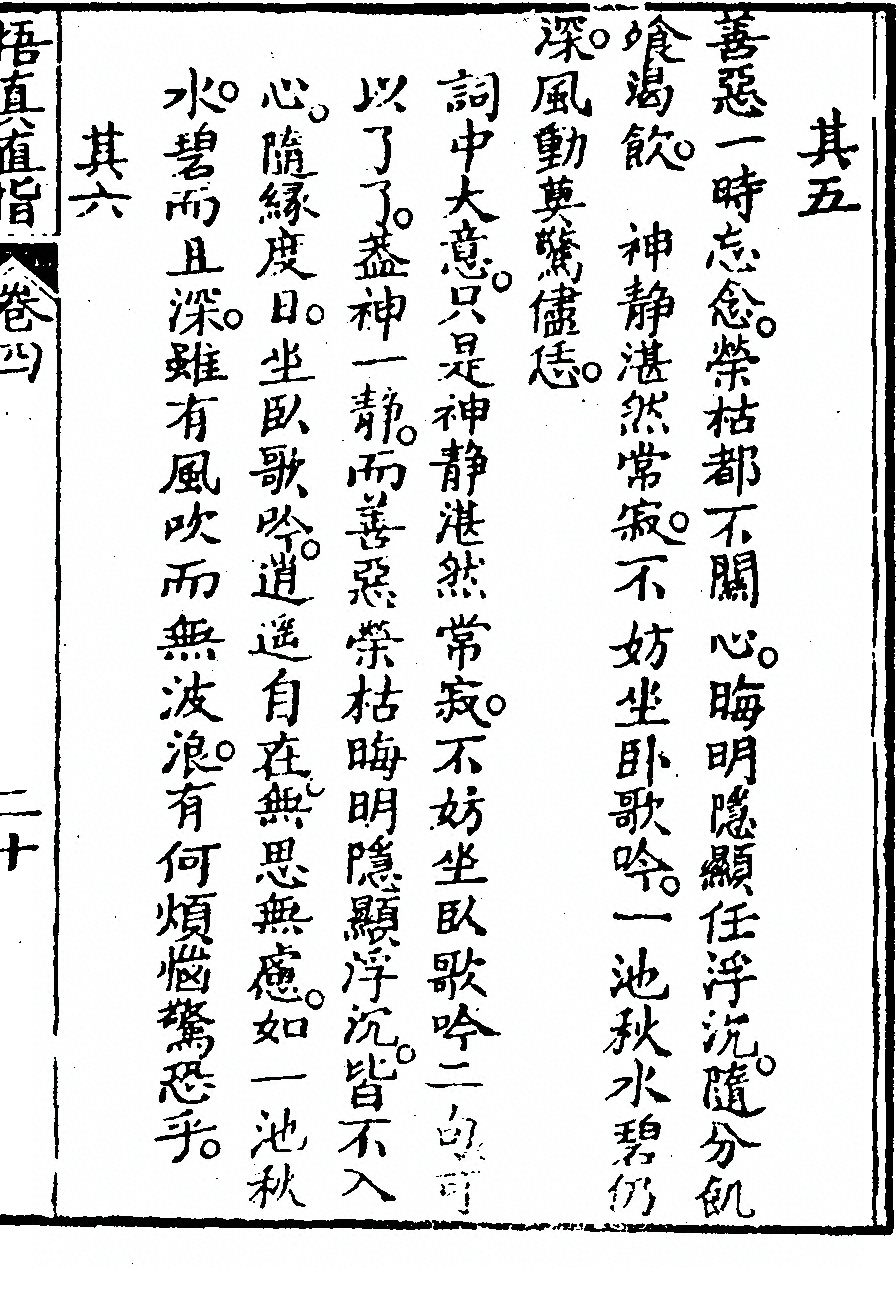 其五
善惡一時忘念。榮枯都不關心。晦明隱顯任浮沉。隨分飢
飡渴飲。　神靜湛然常寂。不妨坐卧歌吟。一池秋水碧仍
深。風動莫驚儘恁。
詞中大意。只是神靜湛然常寂。不妨坐臥歌吟二句可
以了了。葢神一靜。而善惡榮枯晦明隱顯浮沉。皆不入
心。隨緣度日。坐臥歌吟。逍遥自在。無思無慮。如一池秋
水。碧而且深。雖有風吹而無波浪。有何煩惱驚恐乎。
其六
悟真直指
卷四
二十